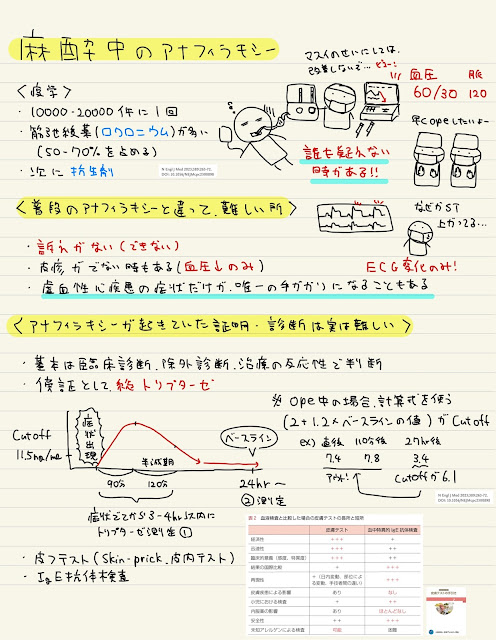 麻酔中のアナフィラキシー
マスイのせいにしては、
改善しないで…
ピコーン!
血圧 脈
60/30 120
〈疫学〉
・10000-20000件に1回
・筋弛緩薬(ロクロニウム)が多い
(50-70%を占める)
・次に抗生剤
N Engl J Med 2023;389:265-72.
早くopeしたいよー
誰も疑えない
時がある!!
〈普段のアナフィラキシーと違って、難しい所〉
・訴えがない(できない)
・皮疹がでない時もある(血圧↓のみ)
・虚血性心疾患の症状だけが、唯一の手がかりになることもある
なぜかST
上がってる…
ECG変化のみ!
〈アナフィラキシーが起きていた証明・診断は実は難しい〉
・基本は臨床診断、除外診断、治療の反応性で判断
・傍証として、総トリプターゼ
Cutoff
11.5ng/mL
症状出現
半減期
90分 120分
ベースライン
24hr〜
②測定
症状でてから3-4hr以内に
トリプターゼ測定①
※ope中の場合、計算式を使う
(2+1.2×ベースラインの値)がCutoff
ex) 直後 110分後 27hr後
7.4 7.8 3.4
アウト! Cutoffが6.1
N Engl J Med 2023;389:265-72.
・皮フテスト(Skin-prick、皮内テスト)
・IgE抗体検査
表2 血液検査と比較した場合の皮膚テストの長所と短所
皮膚テスト 血中特異的 IgE 抗体検査
経済性 +++ +
迅速性 +++ ++
臨床的意義(感度、特異度) +++ ++
結果の国際比較 + +++
再現性 +(日内変動、部位による変動、手技者間の違い) +++
皮膚疾患による影響 あり なし
小児における検査 + ++
内服薬の影響 あり ほとんどなし
安全性 ++ +++
未知アレルゲンによる検査 可能 困難